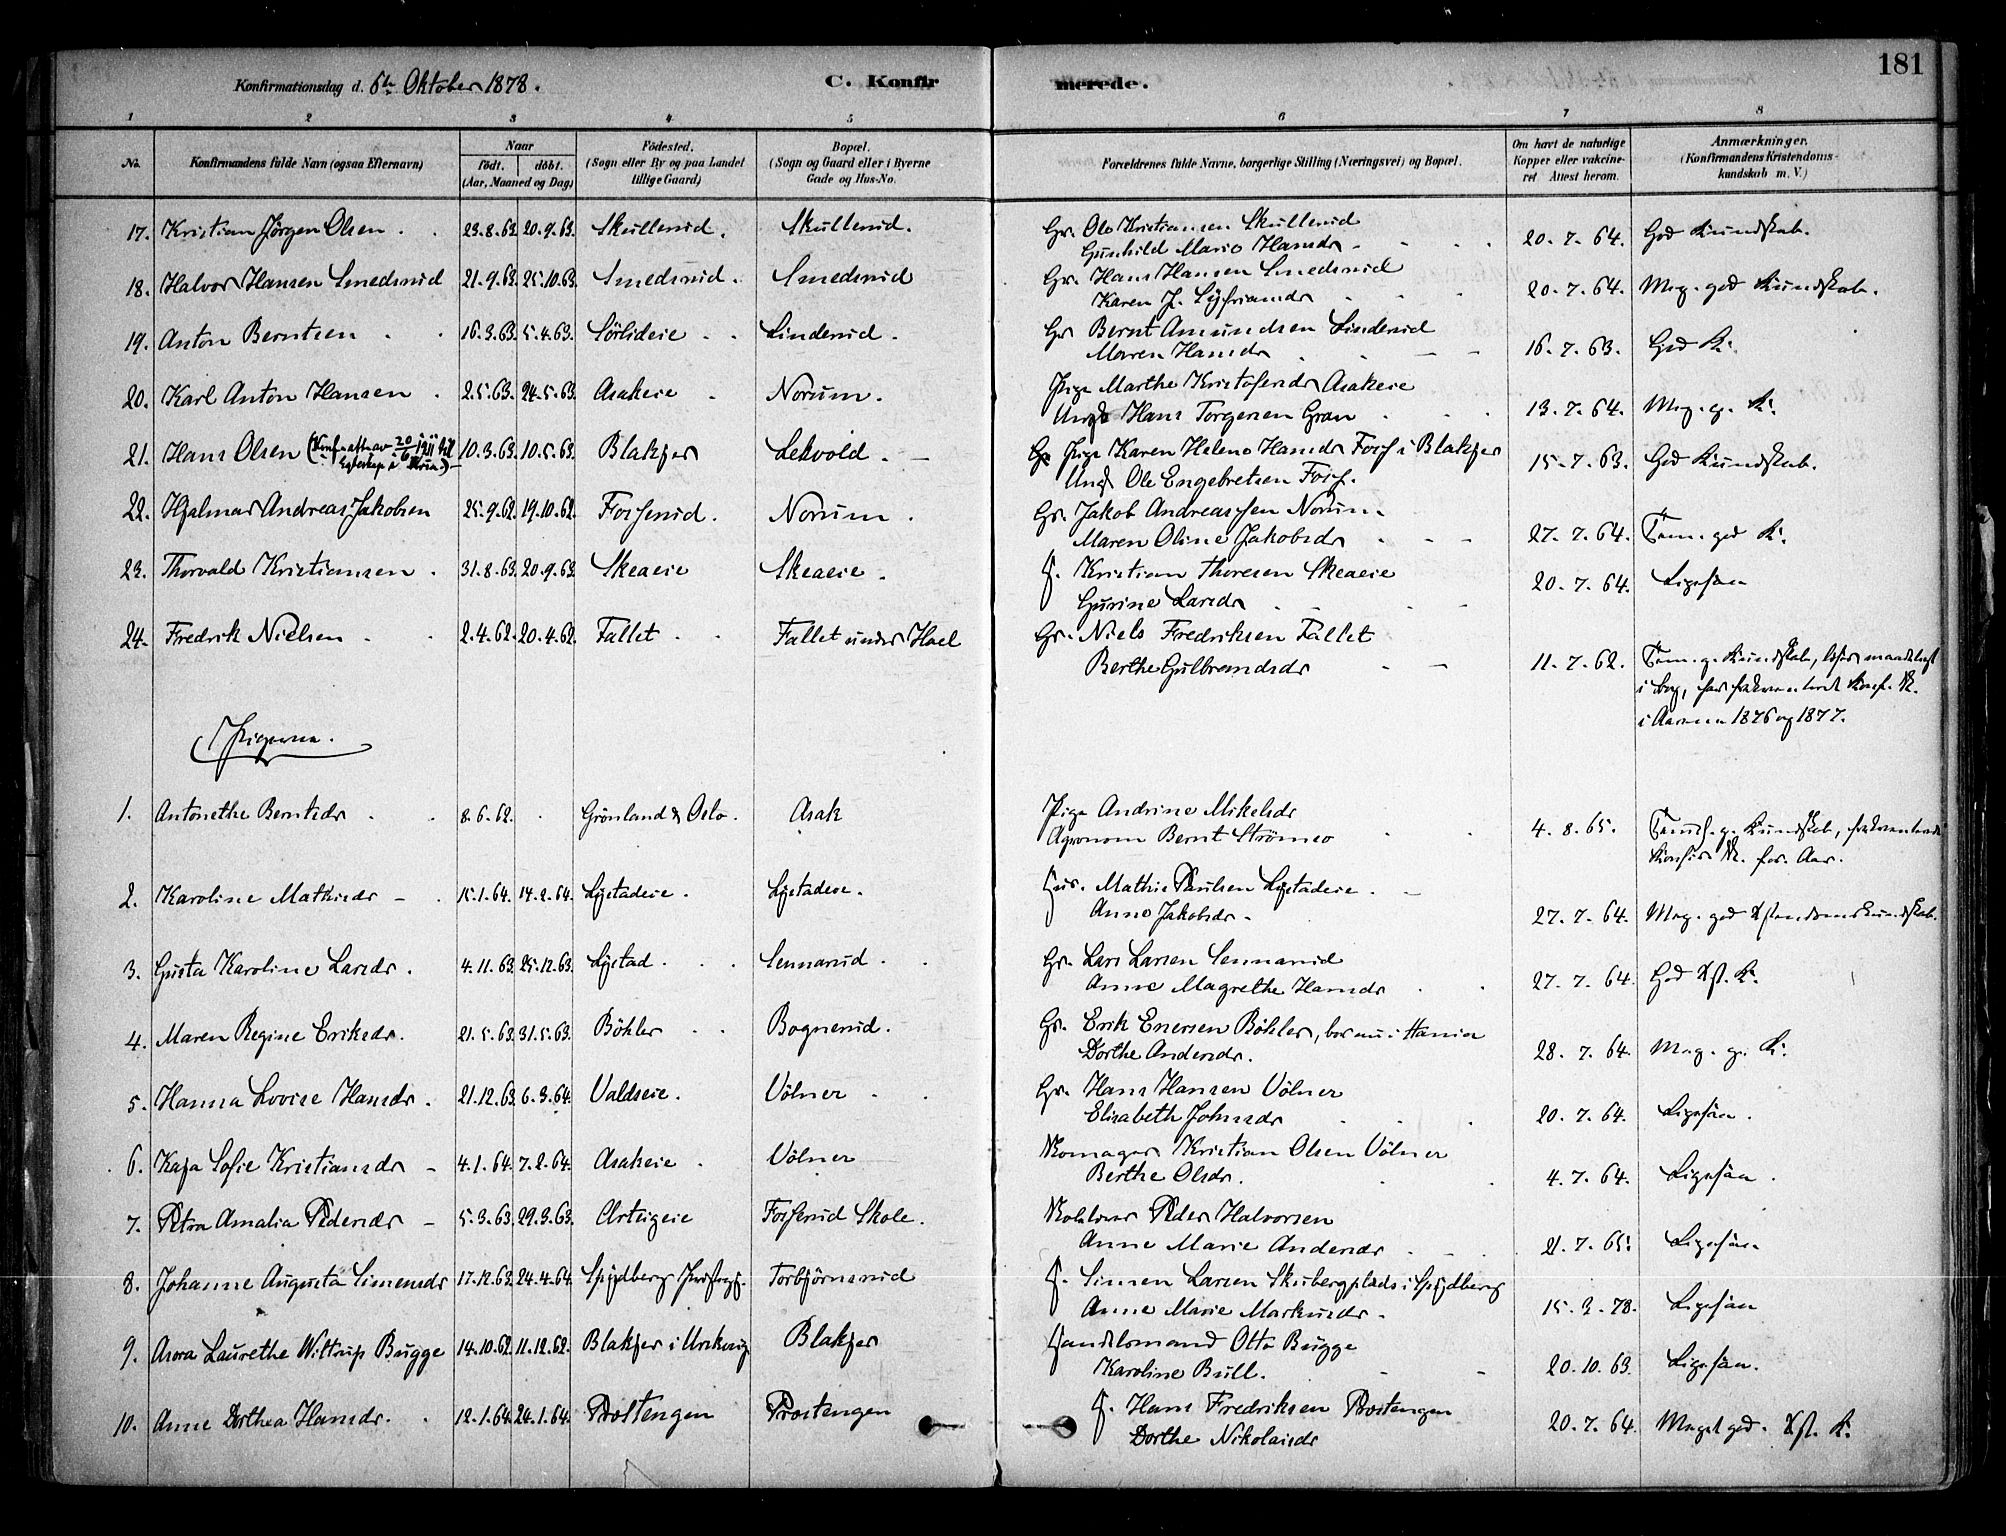 181
Konfirmationsdag d. 6te Oktober 1878.
C. Konfirmerede.
1 2 3 4 5 6 7 8
No.
Konfirmandens fulde Navn (ogsaa Efternavn)
Naar
født. døbt.
(Aar, Maaned og Dag)
Fødested.
(Sogn eller By og paa Landet
tillige Gaard)
Bopæl.
(Sogn og Gaard eller i Byerne
Gade og Hus-No.
Forældrenes fulde Navne, borgerlige Stilling (Næringsvei) og Bopæl.
Om havt de naturlige
Kopper eller vakcine-
ret Attest herom.
Anmærkninger.
(Konfirmandens Kristendoms-
kundskab m. V.)
17. Kristian Jørgen Olsen 23.8.63 20.9.63. Skullerud. Skullerud. Gr. Ole Kristiansen Skullerud
Gunhild Marie Hansdr 20.7.64. God Kundskab.
18. Halvor Hansen Smedsrud 21.9.63 25.10.63. Smedsrud. Smedsrud Gr. Hans Hansen Smedsrud
Karen J. 20.7.64. Meg. god Kundskab.
19. Anton Berntsen 16.3.63. 5.4.63. Sørlideie Linderud. Gr Bernt Amundsen Linderud
Maren Hansdr 16.7.63. God K.
20. Karl Anton Hansen 2.5.63. 24.5.63 Asakeie Norum. Pige Marthe Kristofersdr Asakeie
Ungk Hans Torgersen Gran 13.7.64. Meg. g. K.
21. Hans Olsen (Konf. att. av 20/6 1911 til 10.3.63. 10.5.63. Blakjer Lekvold. Pige Karen Helene Hansdr Foss i Blakjer
Ungk Ole Engebretsen Foss. 15.7.63. God Kundskab.
22. Hjalmar Andreas Jakobsen 25.9.62. 19.10.62. Fosserud. Norum. Gr. Jakob Andreassen Norum
Maren Oline Jakobsdr 27.7.64. Tem. god K.
23. Thorvald Kristiansen 31.8.63 20.9.63. Skeaeie Skeaeie. F. Kristian Thoresen Skeaeie
Gurine Larsdr 20.7.64. Ligesaa
24. Fredrik Nielsen 2.4.62. 20.4.62. Fallet Fallet under Hael Gr. Niels Fredriksen Fallet
Berthe Gulbrandsdr 11.7.62. Tem. g. Kundskab, læser maadeligt
i Bog, har frekventeret Konf. K.
i Aarene 1876 og 1877.
Pigerne.
1. Antonethe Berntsdr 8.6.62. Grønland & Oslo. Asak Pige Andrine Mikelsdr
Agronom Bernt Strømer 4.8.65. Teml. g. Kundskab, frekventerede
Konfir. K. for. Aar.
2. Karoline Mathisdr 15.1.64. 14.2.64. Lystadeie. Lystadeie. Hus. Mathis Paulsen Lystadeie
Anne Jakobsdr. 27.7.64. Meg. god Xstendomskundskab.
3. Gusta Karoline Larsdr. 4.11.63. 25.12.63. Lystad Sennarud Gr. Lars Larsen Sennarud
Anne Magrethe Hansdr 27.7.64 God Xst. K.
4. Maren Regine Eriksdr. 21.5.63 31.5.63. Bøhler Bognerud. Gr. Erik Enersen Bøhler, bor nu i
Dorthe Andersdr. 28.7.64. Meg. g. K.
5. Hanna Lovise Hansdr. 21.12.63. 6.3.64. Valdseie. Völner Gr. Hans Hansen Völner
Elisabeth Johnsdr 20.7.64. Ligesaa.
6. Kaja Sofie Kristiansdr 4.1.64. 7.2.64. Asakeie Völner Skomager Kristian Olsen Völner
Berthe Olsdr. 4.7.64. Ligesaa.
7. Petra Amalia Pedersdr 5.3.63. 29.3.63. Arteigeie Fosserud Skole. Skolelærer Peder Halvorsen
Anne Marie Andersdr 21.7.65. Ligesaa.
8. Johanne Augusta Simensdr 17.12.63. 24.4.64. Spydberg Præstegj. Torbjørnsrud F. Simen Larsen Skubergplads i Spydberg
Anne Marie Markusdr. 15.3.78. Ligesaa
9. Asora Laurethe Wiltrup Bugge 14.10.62. 11.12.62. Blakjer i Urskoug Blakjer Handelsmand Otto Bugge
Karoline Bull. 20.10.63. Ligesaa.
10. Anne Dorthea Hansdr. 12.1.64. 24.1.64. Prostengen Prostengen F. Hans Fredriksen Prostengen
Dorthe Nikolaisdr 20.7.64. Meget god Xst. K.